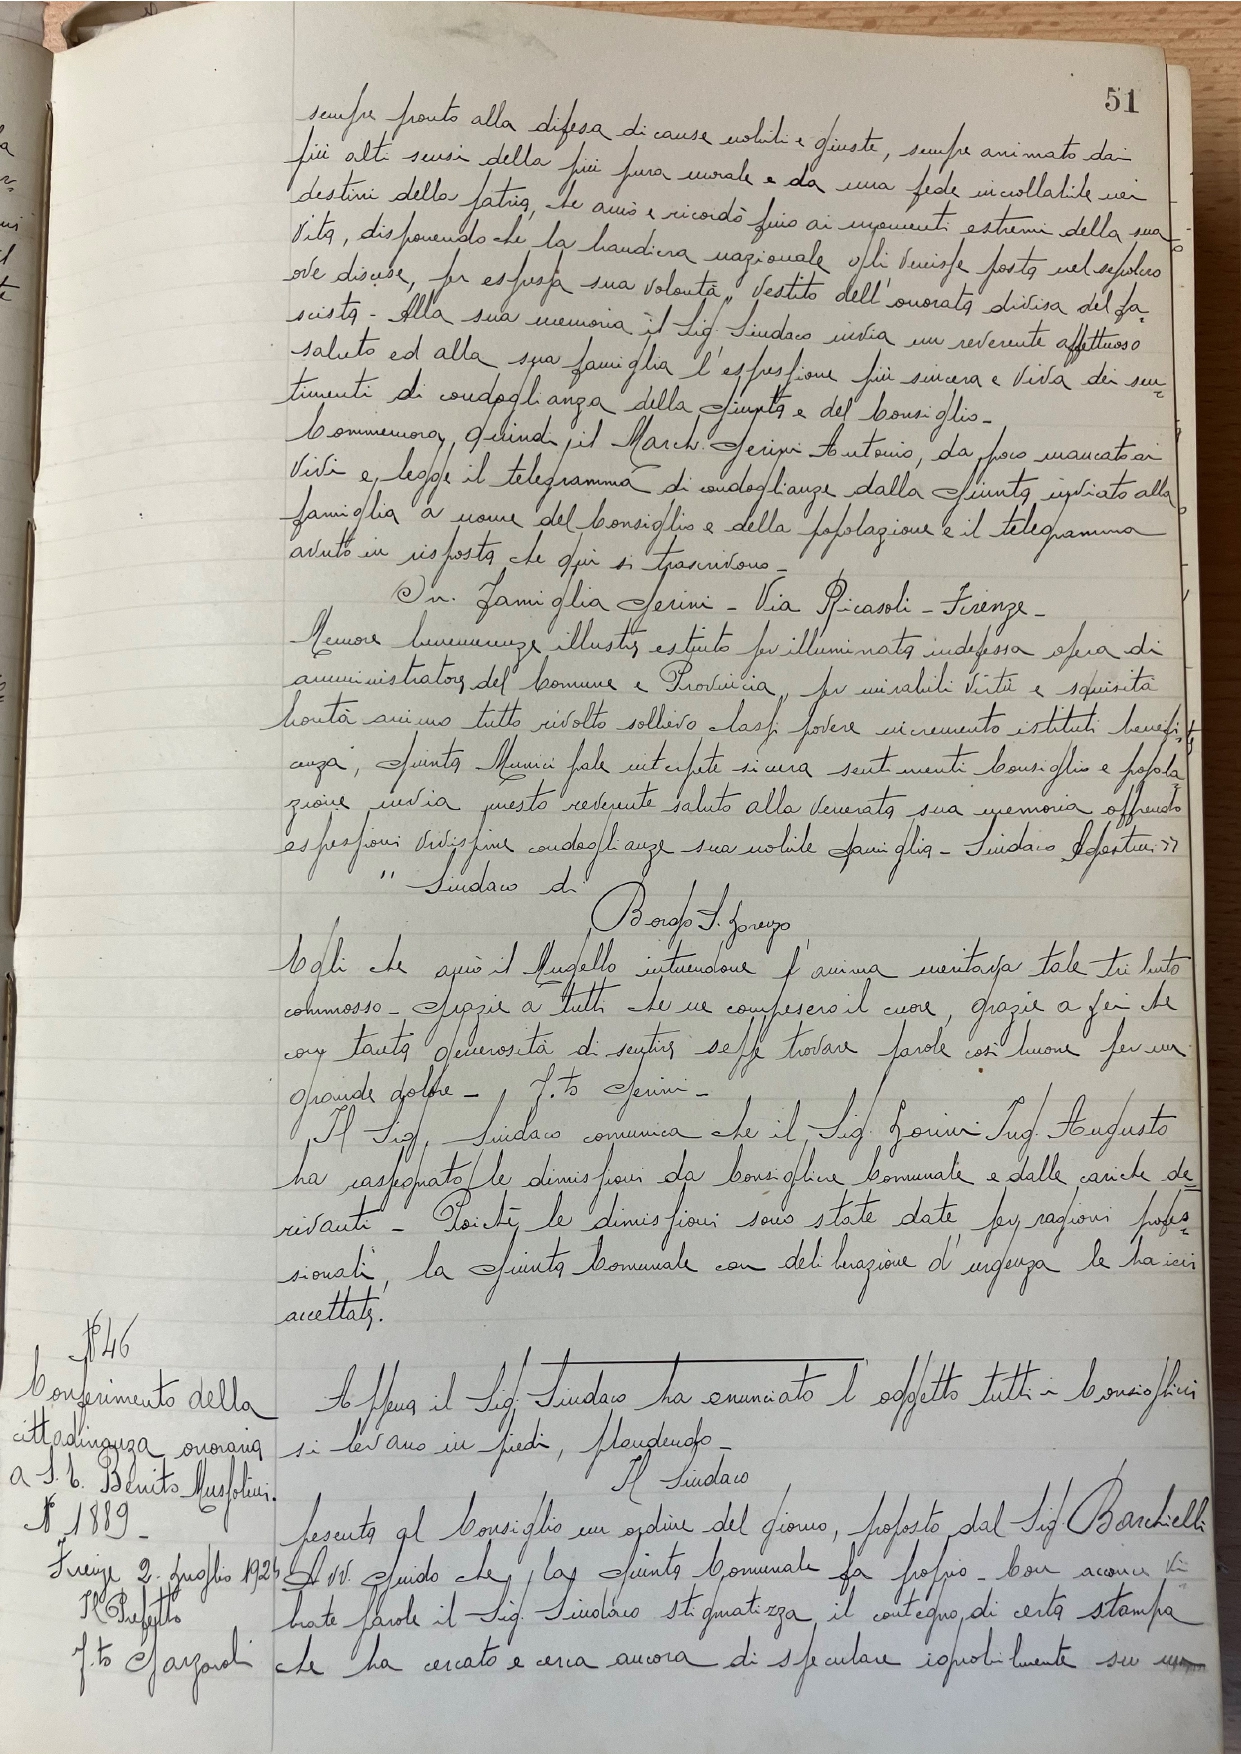 51
sempre pronto alla difesa di cause nobili e giuste, sempre animato dai
più alti sensi della più pura morale e da una fede incrollabile nei
destini della patria, che amò e ricordò fino ai momenti estremi della sua
vita, disponendo che la bandiera nazionale gli venisse posta nel sepolcro
ove discese, per espressa sua volontà, vestito dell'onorata divisa del fa-
scista - Alla sua memoria il Sig. Sindaco invia un reverente affettuoso
saluto ed alla sua famiglia l'espressione più sincera e viva dei sen-
timenti di condoglianza della Giunta e del Consiglio -
Commemora, quindi, il March. Gerini Antonio, da poco mancato ai
vivi e legge il telegramma di condoglianze dalla Giunta inviato alla
famiglia a nome del Consiglio e della popolazione e il telegramma
avuto in risposta che qui si trascrivono -
On. Famiglia Gerini - Via Ricasoli - Firenze -
Memore benemerenze illustre estinto per illuminata indefessa opera di
amministratore del Comune e Provincia, per mirabili virtù e squisita
bontà animo tutto rivolto sollievo classi povere incremento istituti benefi-
cenza, Giunta Municipale interprete sicura sentimenti Consiglio e popola
zione invia questo reverente saluto alla venerata sua memoria offrendo
espressioni vivissime condoglianze sua nobile famiglia - Sindaco "
" Sindaco di
Borgo S. Lorenzo
Egli che amò il Mugello intuendone l'anima meritava tale tributo
commosso - Grazie a tutti che ne compresero il cuore, grazie a Lei che
con tanta generosità di sentire seppe trovare parole così buone per un
grande dolore - F.to Gerini -
Il Sig. Sindaco comunica che il Sig. Lorini Ing. Augusto
ha rassegnato le dimissioni da Consigliere Comunale e dalle cariche de=
rivanti - Poichè le dimissioni sono state date per ragioni profes=
sionali, la Giunta Comunale con deliberazione d'urgenza le ha ieri
accettate.
N 46
Conferimento della
cittadinanza onoraria
a S.E. Benito Mussolini.
N 1889 -
Firenze 2. Luglio 1924
Il Prefetto
F.to Garzaroli
Appena il Sig. Sindaco ha enunciato l'oggetto tutti i Consiglieri
si levano in piedi, plaudendo -
Il Sindaco
presenta al Consiglio un ordine del giorno, proposto dal Sig. Barchielli
Avv. Guido che la Giunta Comunale fa proprio - Con acconce vi
brate parole il Sig. Sindaco stigmatizza il contegno di certa stampa
che ha cercato e cerca ancora di speculare ignobilmente su